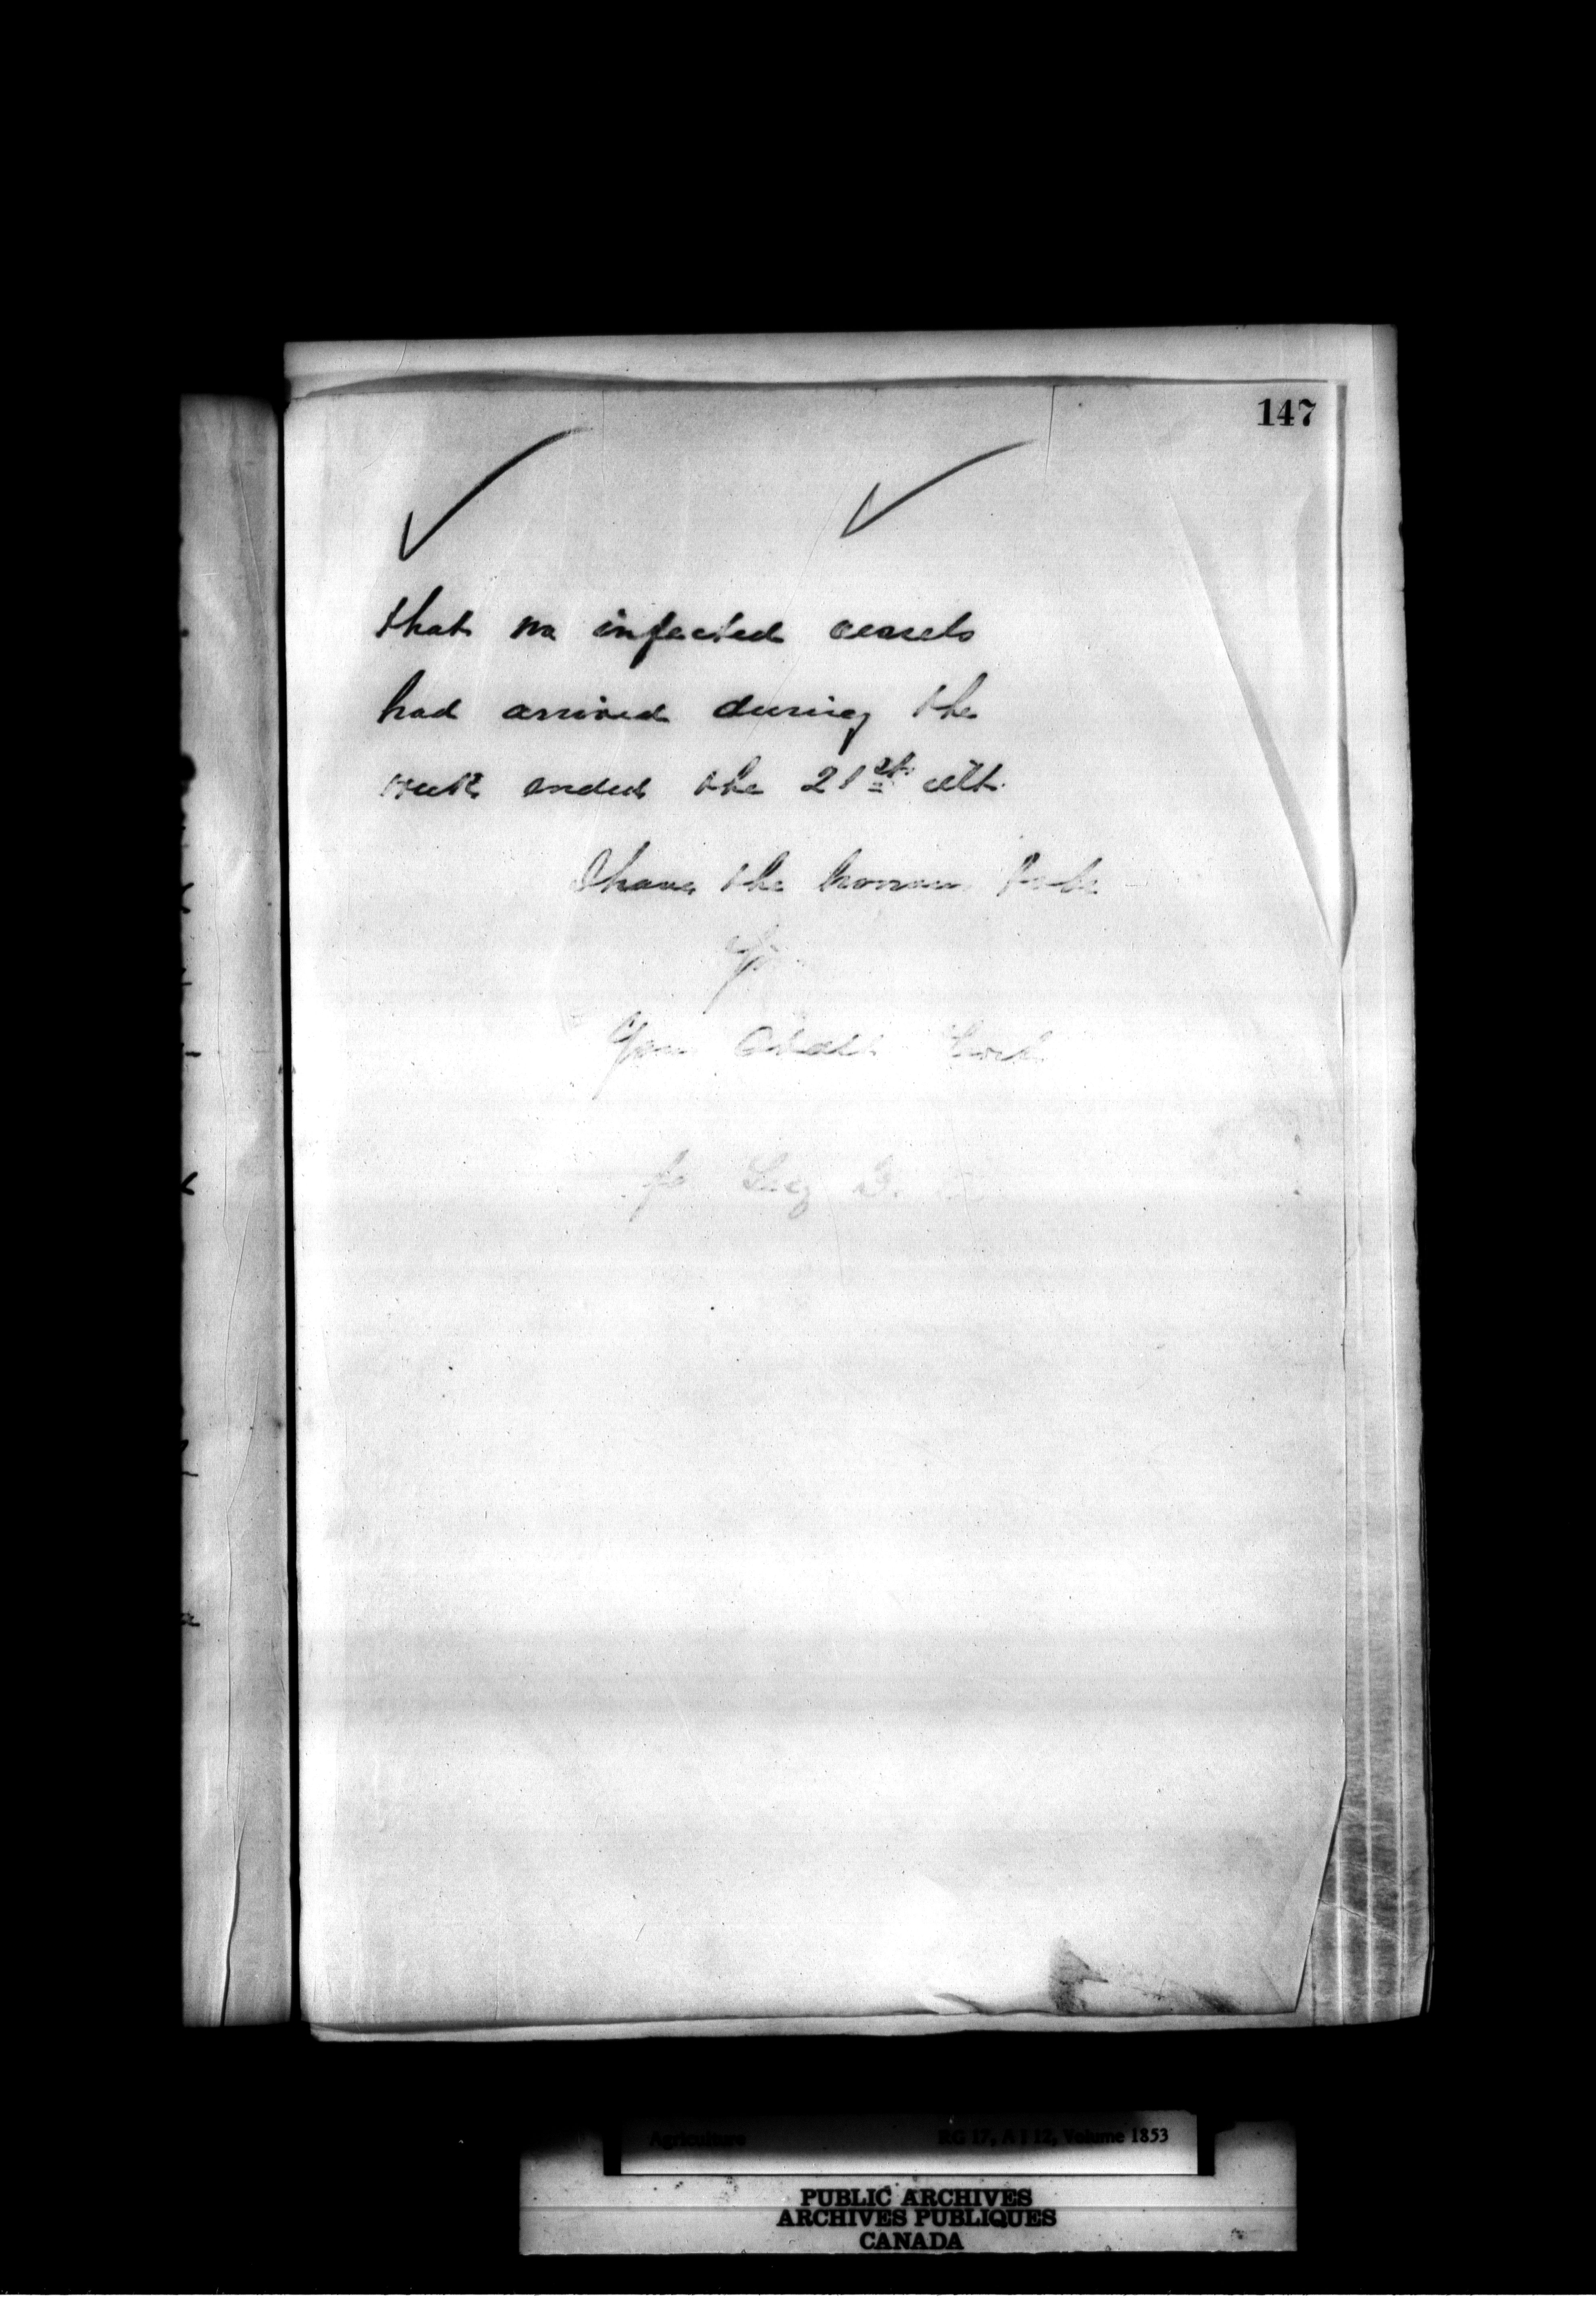 147
that no infected vessels
had arrived during the
week ended the 21st ult.
I have the honour to be
Sir
Your Obedt Servt
for Secy D.
Agriculture RG 17, A I 12, Volume 1853
PUBLIC ARCHIVES
ARCHIVES PUBLIQUES
CANADA